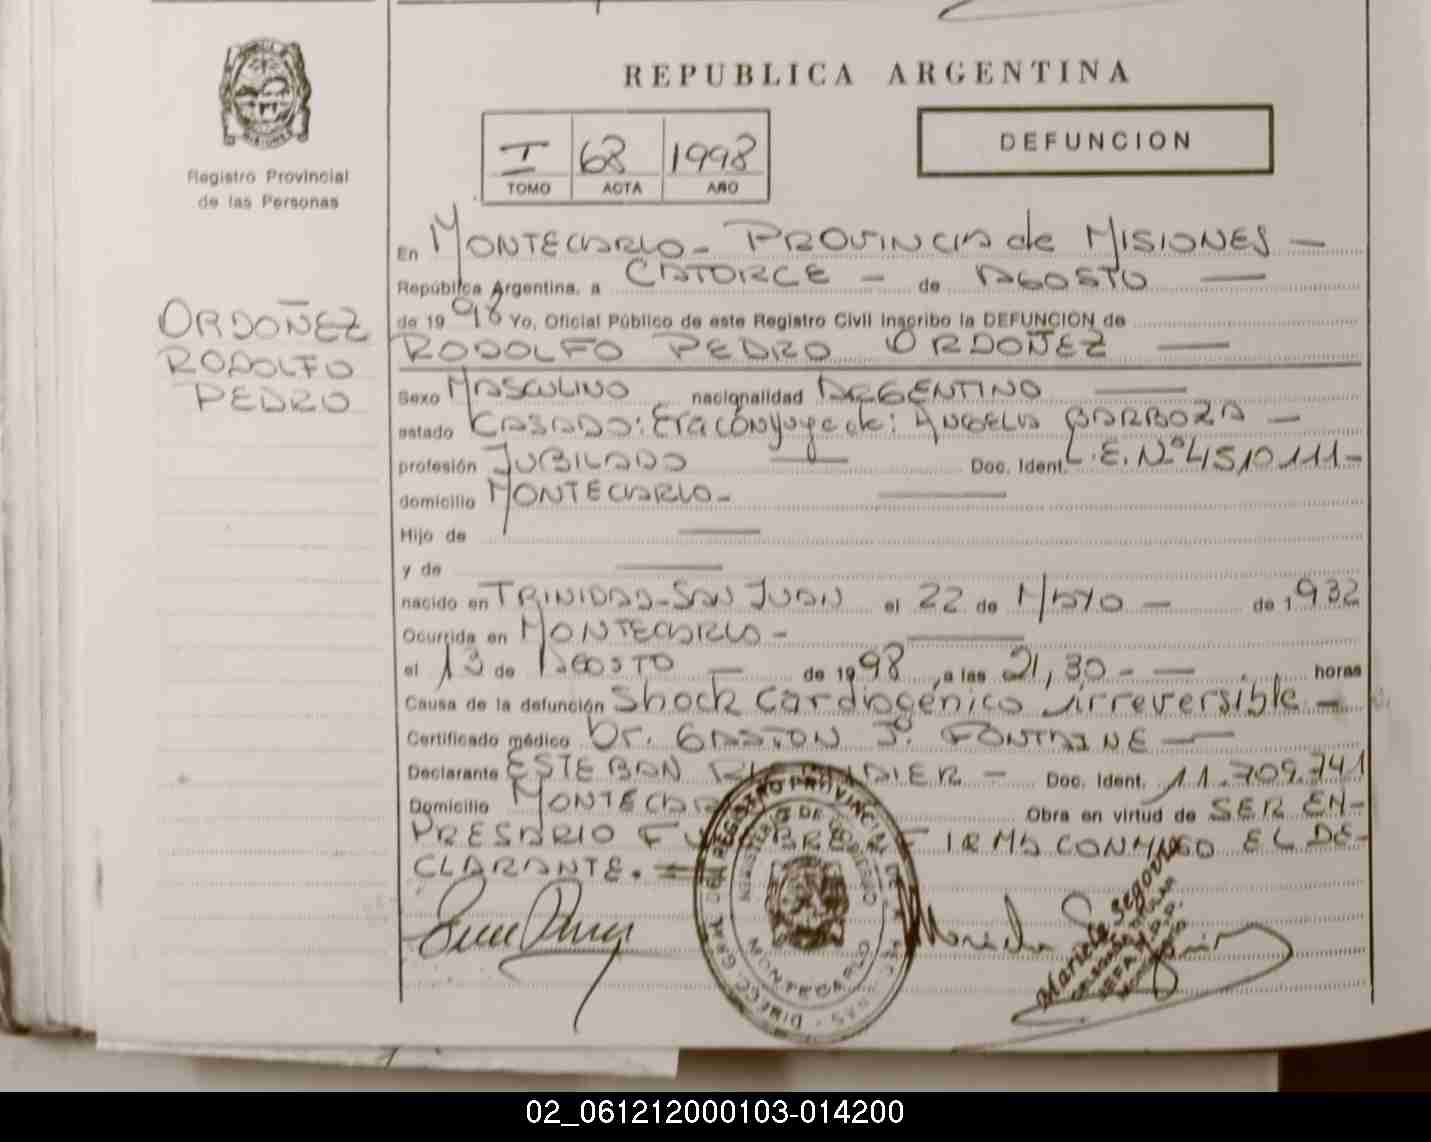 REPUBLICA ARGENTINA
MISIONES
Registro Provincial
de las Personas
I 68 1998
TOMO ACTA AÑO
DEFUNCION
ORDOÑEZ
RODOLFO
PEDRO
En MONTECARLO - PROVINCIA de MISIONES —
República Argentina, a CATORCE — de AGOSTO —
de 1998 Yo, Oficial Público de este Registro Civil inscribo la DEFUNCION de
RODOLFO PEDRO ORDOÑEZ —
Sexo MASCULINO nacionalidad ARGENTINO —
estado CASADO: Era cónyuge de: ANGELA BARBOZA —
profesión JUBILADO — Doc. Ident. L.E. Nº 4510111-
domicilio MONTECARLO- —
Hijo de —
y de —
nacido en TRINIDAD-SAN JUAN el 22 de MAYO — de 1932
Ocurrida en MONTECARLO- —
el 13 de AGOSTO — de 1998, a las 21,30 - — horas
Causa de la defunción Shock cardiogénico irreversible —
Certificado médico Dr. GASTON J. FONTAINE —
Declarante ESTEBAN — Doc. Ident. 11.709.741
Domicilio MONTECAR Obra en virtud de SER EM-
PRESARIO FUNEBRE FIRMA CONMIGO EL DE-
CLARANTE. =
REGISTRO PROVINCIAL DE LAS PERSONAS - DIRECC. GRAL. DEL
MINISTERIO DE GOBIERNO
MONTECARLO
Mariela Segovia
02_061212000103-014200